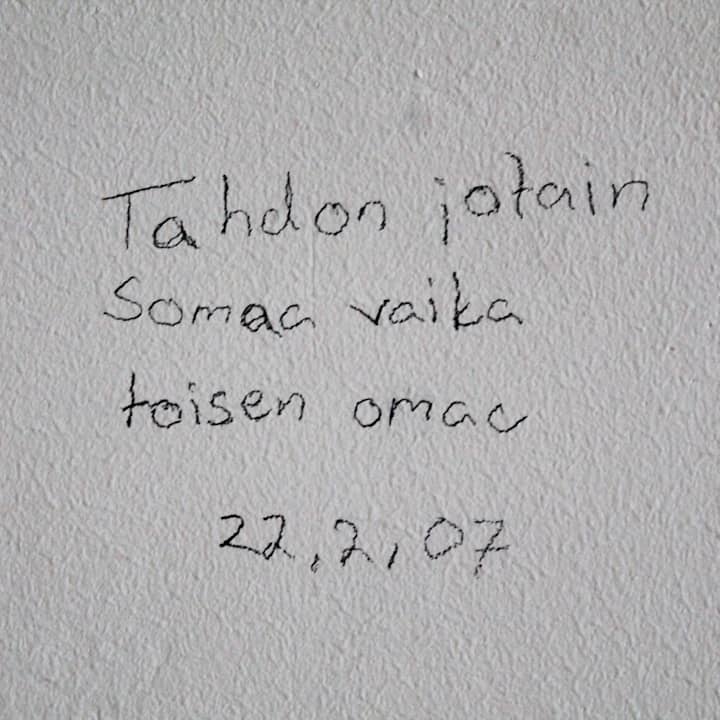 Tahdon jotain
Somaa vaika
toisen omaa
22.2.07